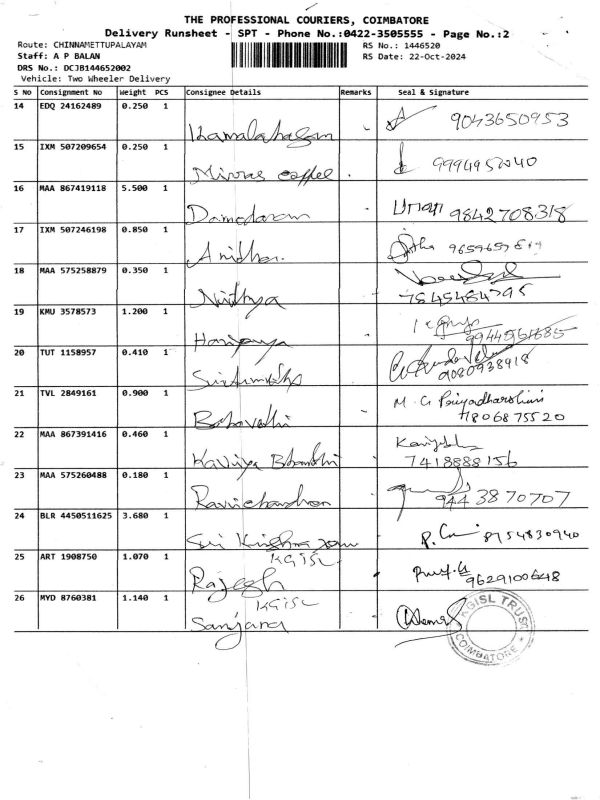 THE PROFESSIONAL COURIERS, COIMBATORE
Delivery Runsheet - SPT - Phone No.:0422-3505555 - Page No.:2
Route: CHINNAMETTUPALAYAM RS No.: 1446520
Staff: A P BALAN RS Date: 22-Oct-2024
DRS No.: DCJB14465Z002
Vehicle: Two Wheeler Delivery
S NO Consignment No Weight PCS Consignee Details Remarks Seal & Signature
14 EDQ 24162489 0.250 1
Kamalahasan 9043650953
15 IXM 507209654 0.250 1
coffee
16 MAA 867419118 5.500 1
Damodaran 9842708318
17 IXM 507246198 0.850 1
18 MAA 575258879 0.350 1
Nithya 7845484795
19 KMU 3578573 1.200 1
Haripriya
20 TUT 1158957 0.410 1
9080938918
21 TVL 2849161 0.900 1
M. G Priyadharshini
22 MAA 867391416 0.460 1
Kaviya 7418888156
23 MAA 575260488 0.180 1
Ravichandran 9443870707
24 BLR 4450511625 3.680 1
Sri Krishna 8754830940
25 ART 1908750 1.070 1 KGISL
Rajesh 9629100648
26 MYD 8760381 1.140 1 KGISL
Sanjana
KGISL TRUST
COIMBATORE